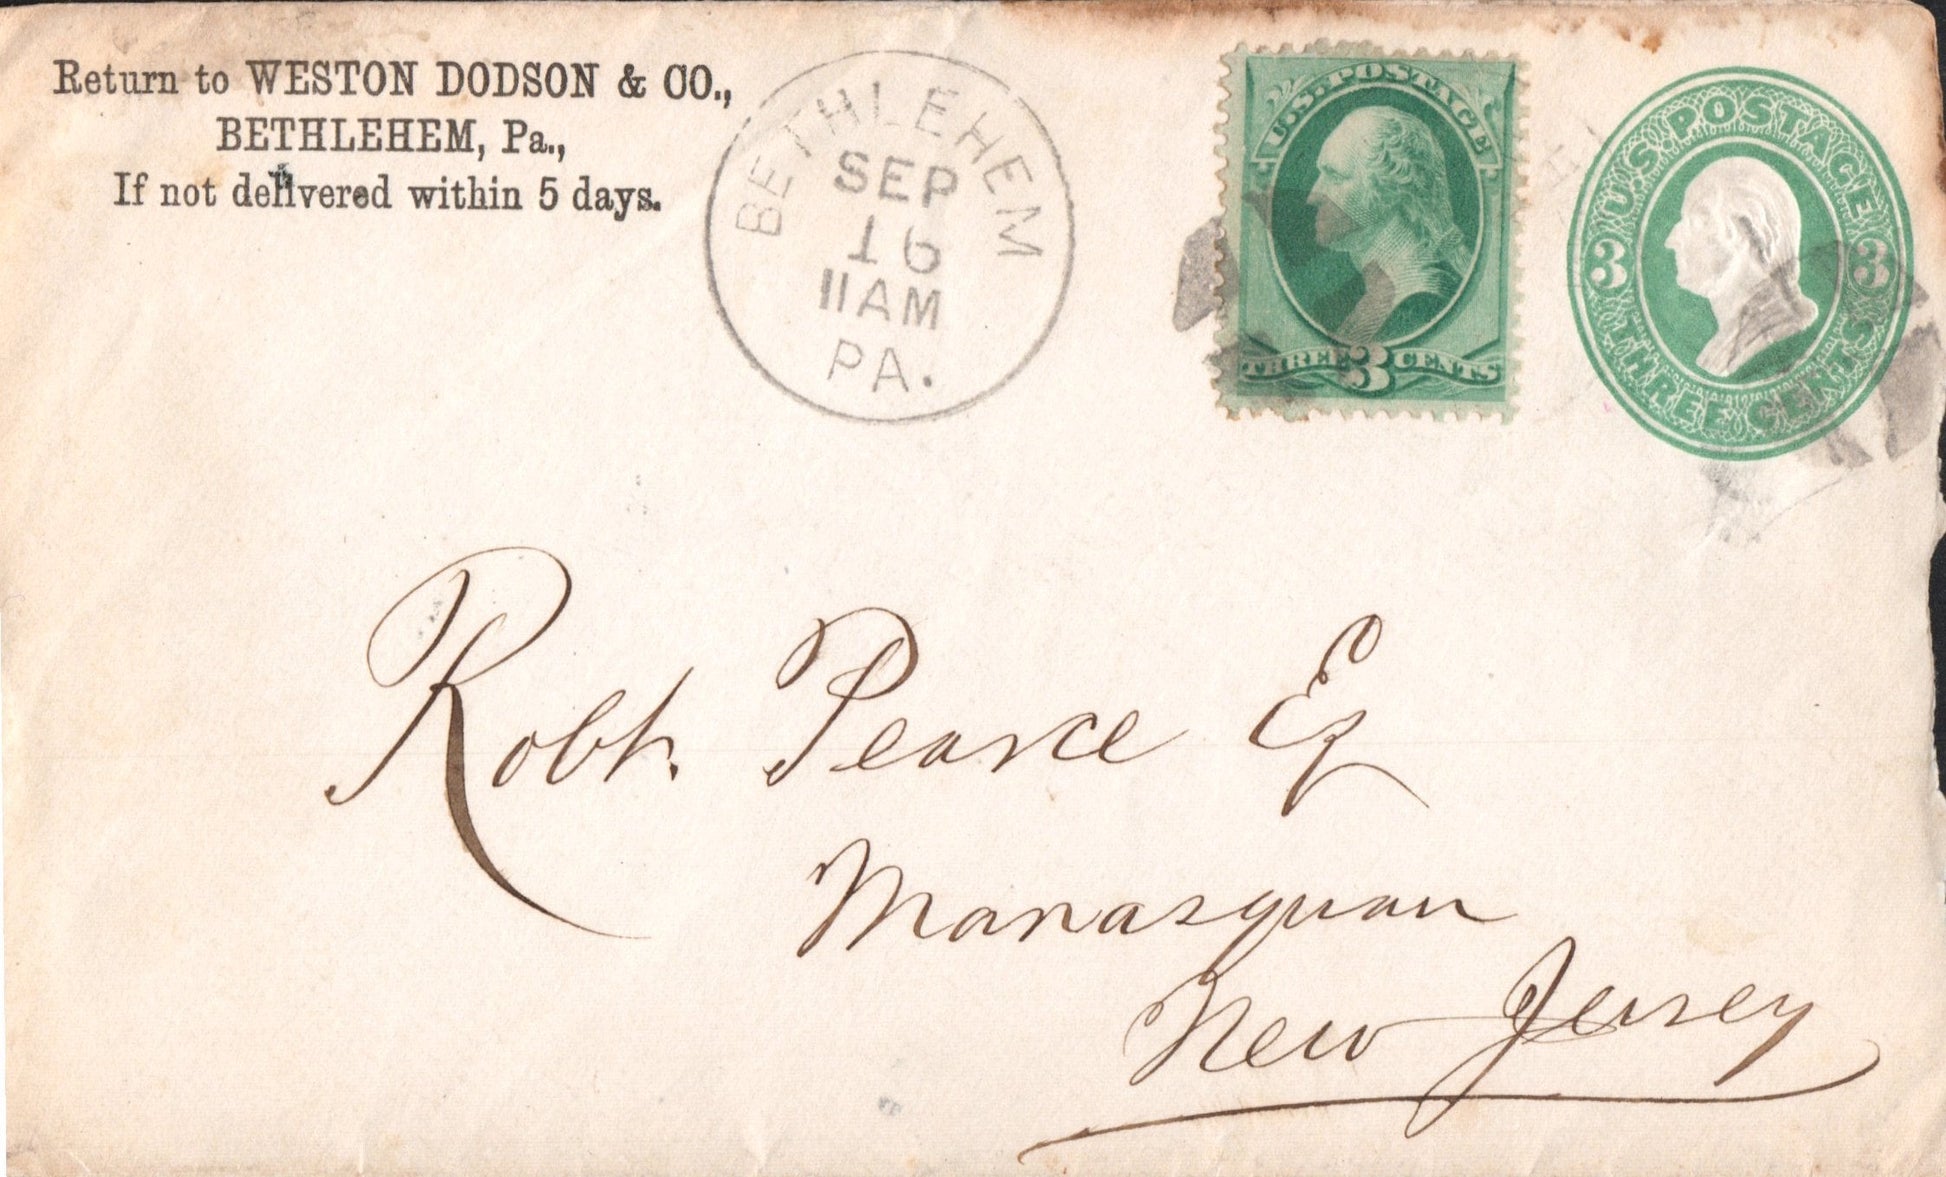 Return to WESTON DODSON & CO.,
BETHLEHEM, Pa.,
If not delivered within 5 days.
BETHLEHEM
SEP
16
11AM
PA.
U.S. POSTAGE
THREE 3 CENTS
U.S. POSTAGE
3 3
THREE CENTS
Robt. Pearce Eq
Manasquan
New Jersey